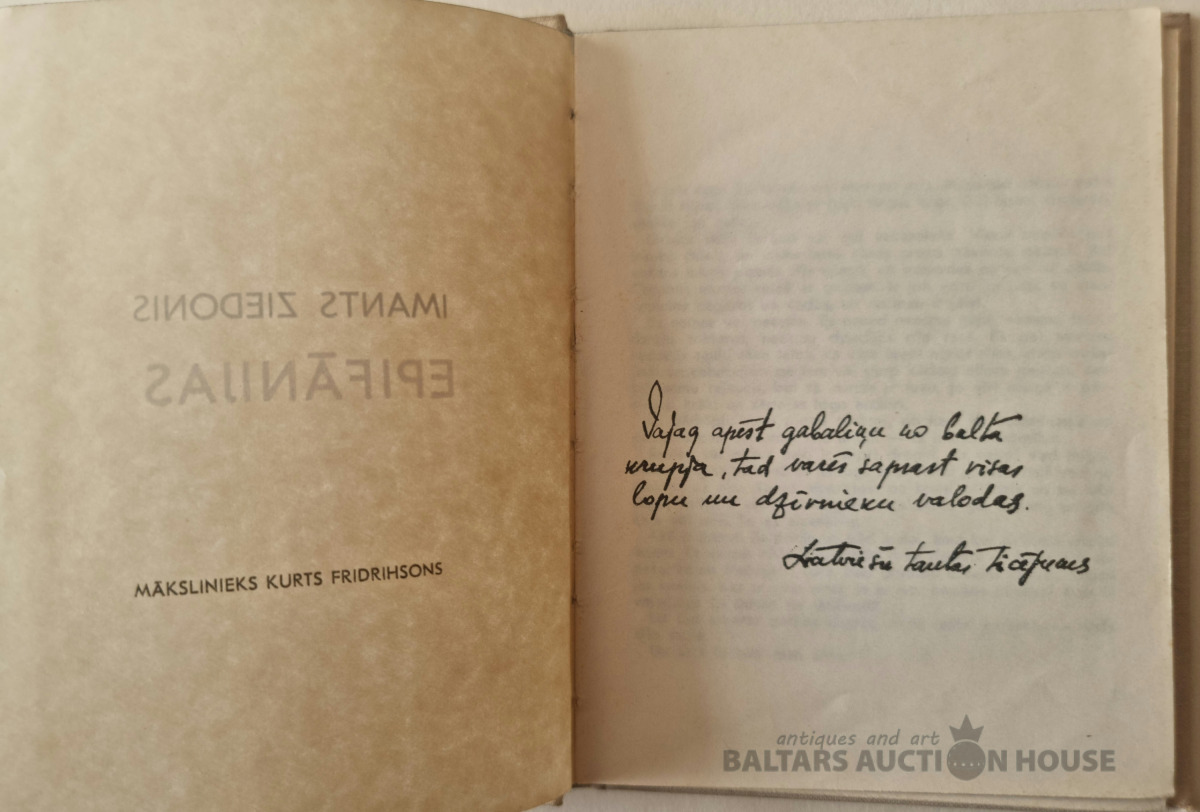 IMANTS ZIEDONIS
EPIFĀNIJAS
MĀKSLINIEKS KURTS FRIDRIHSONS
Vajag apēst gabaliņu no balta
krupja, tad varēs saprast visas
lopu un dzīvnieku valodas.
Latviešu tautas ticējums
antiques and art
BALTARS AUCTION HOUSE